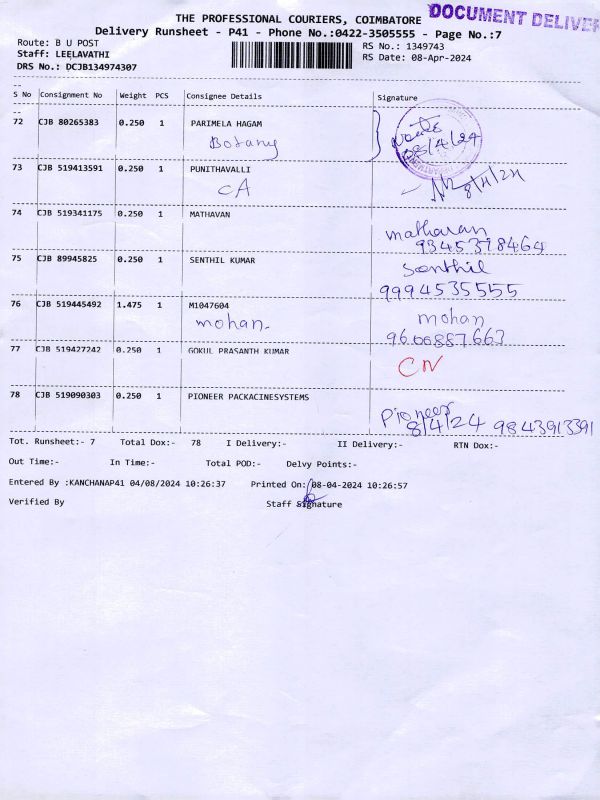 THE PROFESSIONAL COURIERS, COIMBATORE
DOCUMENT DELIVER
Delivery Runsheet - P41 - Phone No.:0422-3505555 - Page No.:7
Route: B U POST
Staff: LEELAVATHI
DRS No.: DCJB134974307
RS No.: 1349743
RS Date: 08-Apr-2024
S No Consignment No Weight PCS Consignee Details Signature
72 CJB 80265383 0.250 1 PARIMELA HAGAM
Botany
08/4/24
73 CJB 519413591 0.250 1 PUNITHAVALLI
CA
8/4/24
74 CJB 519341175 0.250 1 MATHAVAN
matharan
9345378464
75 CJB 89945825 0.250 1 SENTHIL KUMAR
Senthil
9994535555
76 CJB 519445492 1.475 1 M1047604
mohan.
mohan
9600887663
77 CJB 519427242 0.250 1 GOKUL PRASANTH KUMAR
CN
78 CJB 519090303 0.250 1 PIONEER PACKACINESYSTEMS
Pioneer
8/4/24 9843913391
Tot. Runsheet:- 7 Total Dox:- 78 I Delivery:- II Delivery:- RTN Dox:-
Out Time:- In Time:- Total POD:- Delvy Points:-
Entered By :KANCHANAP41 04/08/2024 10:26:37 Printed On:/08-04-2024 10:26:57
Verified By Staff Signature